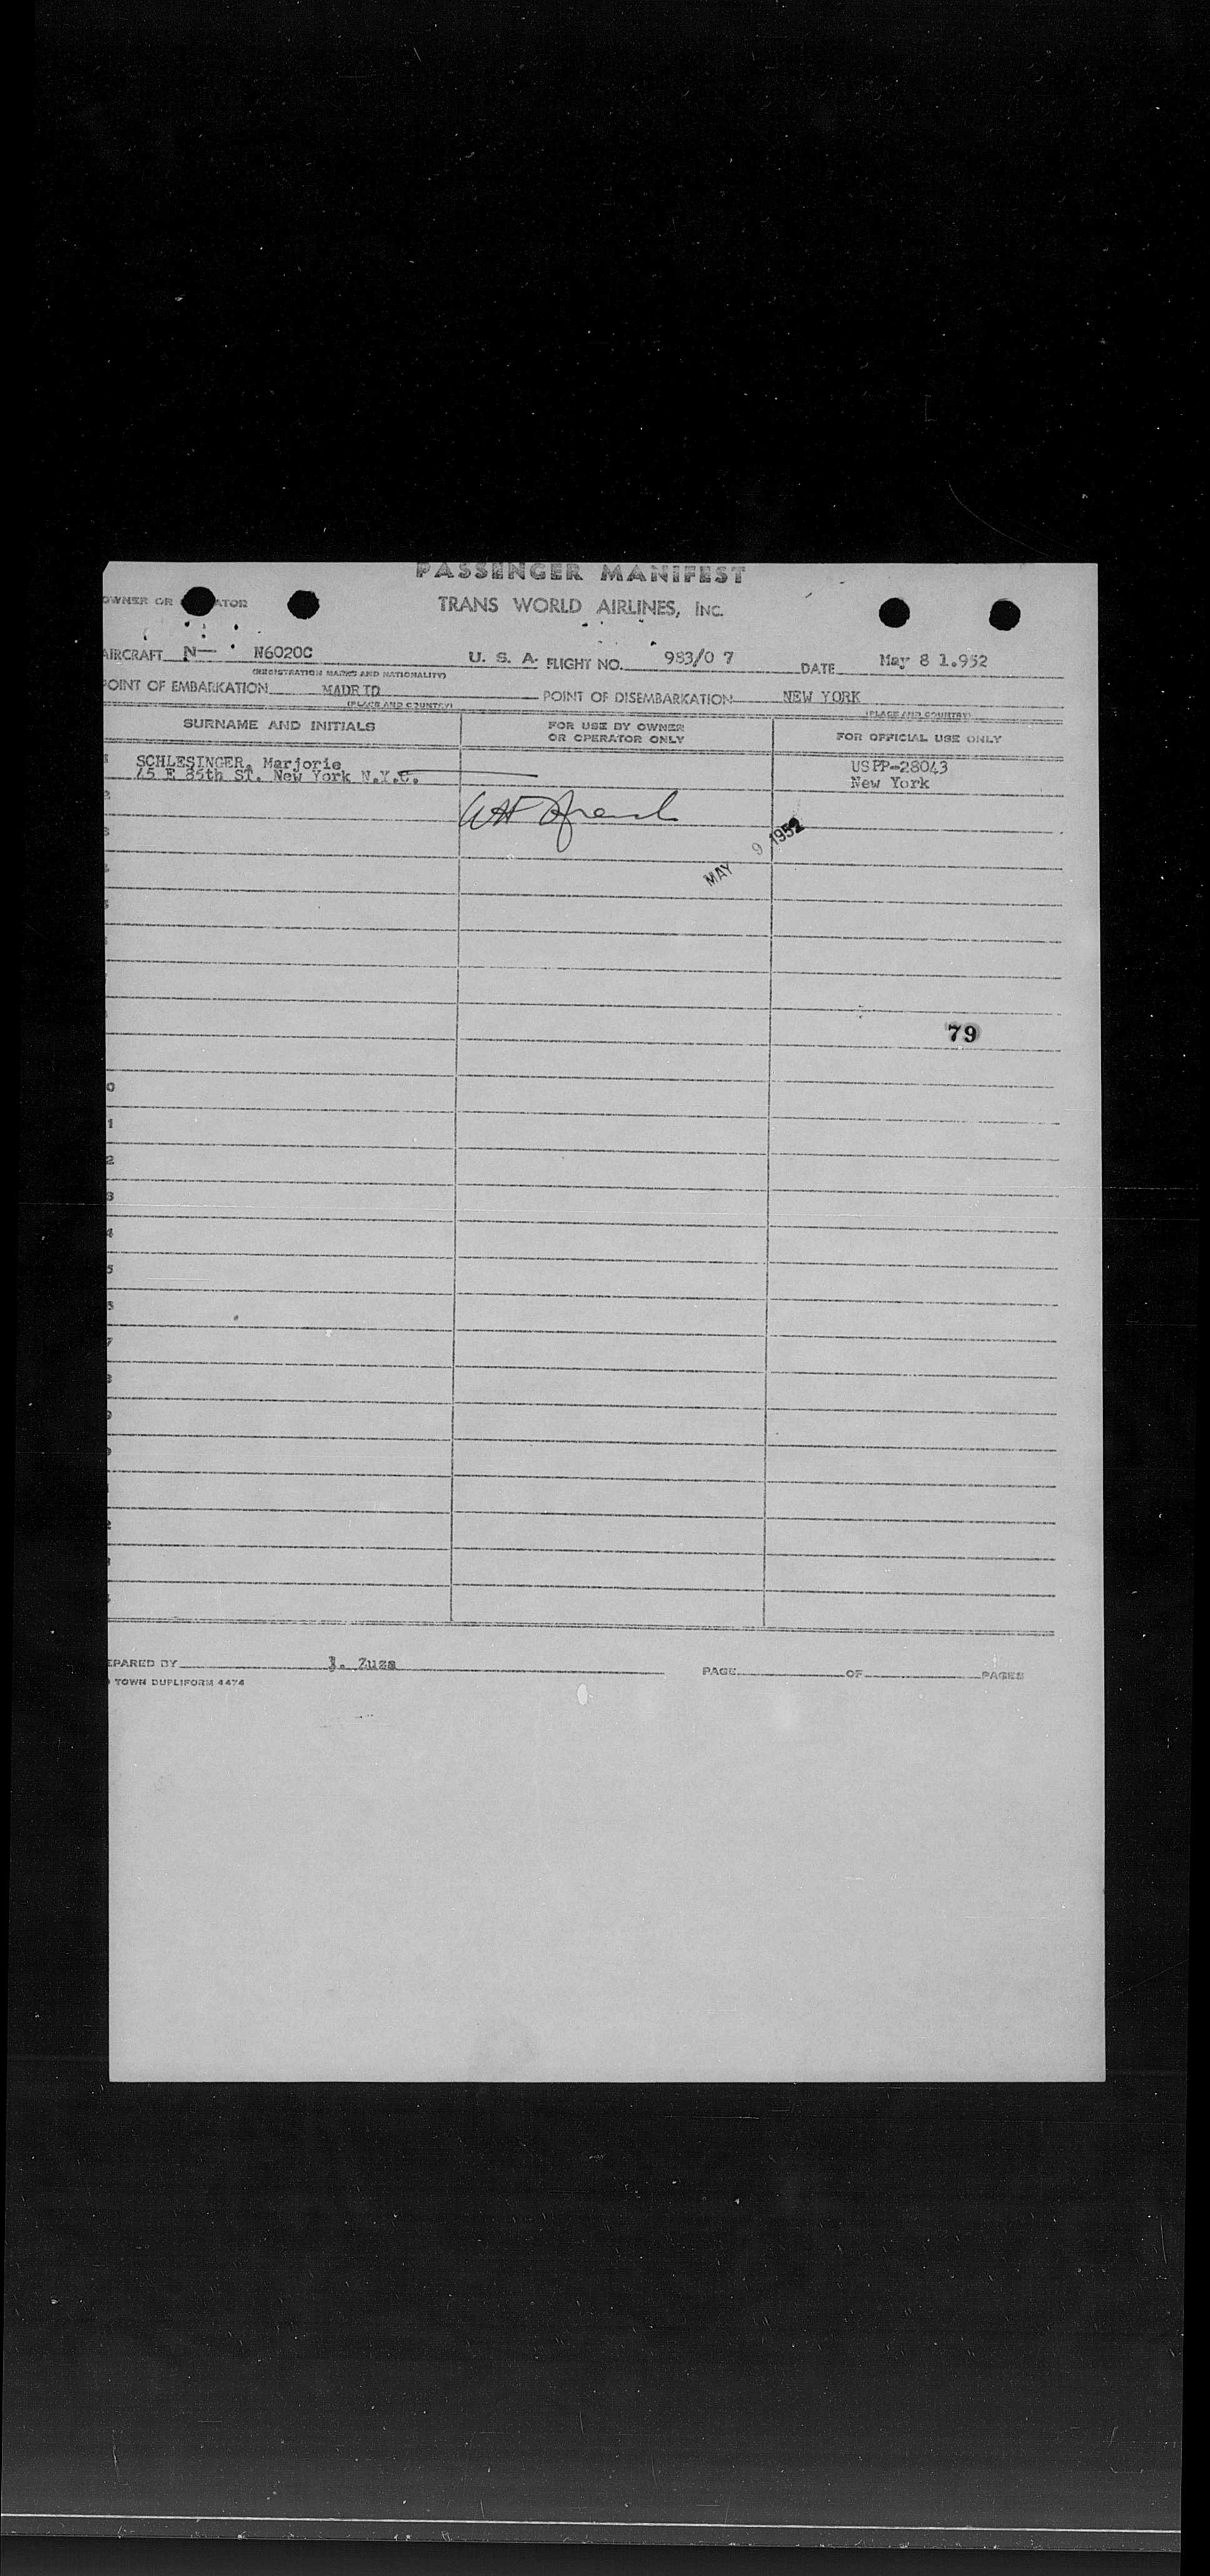 PASSENGER MANIFEST
OWNER OR ATOR
TRANS WORLD AIRLINES, INC.
AIRCRAFT N— N6020C U. S. A. FLIGHT NO. 983/0 7 DATE May 8 1.952
(REGISTRATION MARKS AND NATIONALITY)
POINT OF EMBARKATION MADRID POINT OF DISEMBARKATION NEW YORK
(PLACE AND COUNTRY) (PLACE AND COUNTRY)
SURNAME AND INITIALS FOR USE BY OWNER OR OPERATOR ONLY FOR OFFICIAL USE ONLY
SCHLESINGER, Marjorie USPP-28043
45 E 85th ST. New York N.Y.C. New York
2
3
MAY 9 1952
79
0
1
2
3
4
5
6
7
8
9
0
1
2
3
EPARED BY J. Zuza PAGE OF PAGES
TOWN DUPLIFORM 4474